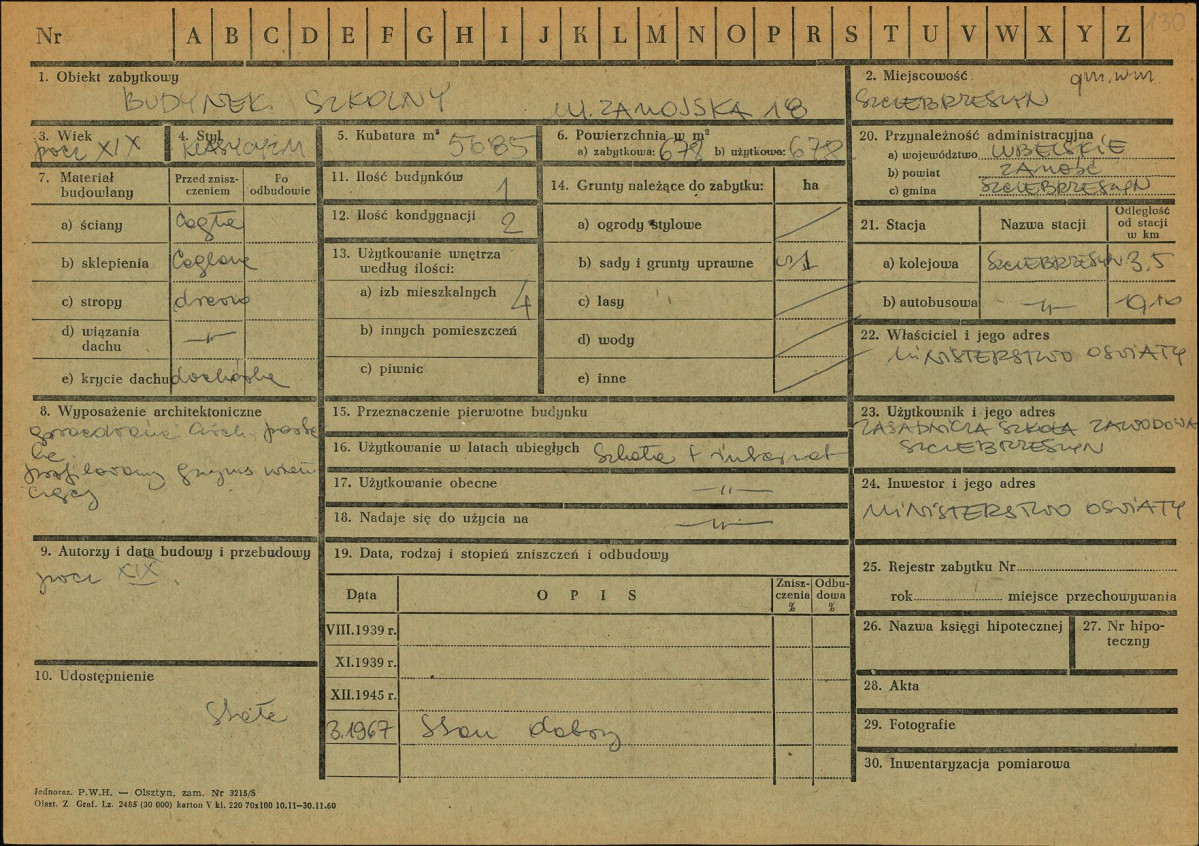 Nr A B C D E F G H I J K L M N O P R S T U V W X Y Z 130
1. Obiekt zabytkowy
BUDYNEK SZKOLNY ul. ZAMOJSKA 18
2. Miejscowość gm. wm.
SZCZEBRZESZYN
3. Wiek
pocz XIX
4. Styl
KLASYCYZM
5. Kubatura m³ 5685
6. Powierzchnia w m²
a) zabytkowa: 678 b) użytkowa: 678
7. Materiał budowlany
Przed zniszczeniem
Po odbudowie
a) ściany cegła
b) sklepienia Ceglane
c) stropy drewno
d) wiązania dachu -„-
e) krycie dachu dachówka
8. Wyposażenie architektoniczne
profilowany gzyms wień
czący
9. Autorzy i data budowy i przebudowy
pocz XIX.
10. Udostępnienie
Stałe
11. Ilość budynków 1
12. Ilość kondygnacji 2
13. Użytkowanie wnętrza
według ilości:
a) izb mieszkalnych 4
b) innych pomieszczeń
c) piwnic
14. Grunty należące do zabytku: ha
a) ogrody stylowe
b) sady i grunty uprawne
c) lasy
d) wody
e) inne
15. Przeznaczenie pierwotne budynku
16. Użytkowanie w latach ubiegłych Szkoła + internat
17. Użytkowanie obecne -„-
18. Nadaje się do użycia na -„-
19. Data, rodzaj i stopień zniszczeń i odbudowy
Data OPIS Zniszczenia % Odbudowa %
VIII.1939 r.
XI.1939 r.
XII.1945 r.
3.1967 Stan dobry
20. Przynależność administracyjna
a) województwo LUBELSKIE
b) powiat ZAMOŚĆ
c) gmina SZCZEBRZESZYN
21. Stacja Nazwa stacji Odległość od stacji w km
a) kolejowa SZCZEBRZESZYN 3,5
b) autobusowa -„-
22. Właściciel i jego adres
MINISTERSTWO OŚWIATY
23. Użytkownik i jego adres
ZASADNICZA SZKOŁA ZAWODOWA
SZCZEBRZESZYN
24. Inwestor i jego adres
MINISTERSTWO OŚWIATY
25. Rejestr zabytku Nr
rok miejsce przechowywania
26. Nazwa księgi hipotecznej
27. Nr hipoteczny
28. Akta
29. Fotografie
30. Inwentaryzacja pomiarowa
Jednoraz. P.W.H. — Olsztyn, zam. Nr 3215/S
Olszt. Z. Graf. Lz. 2485 (30 000) karton V kl. 220 70x100 10.11—30.11.60